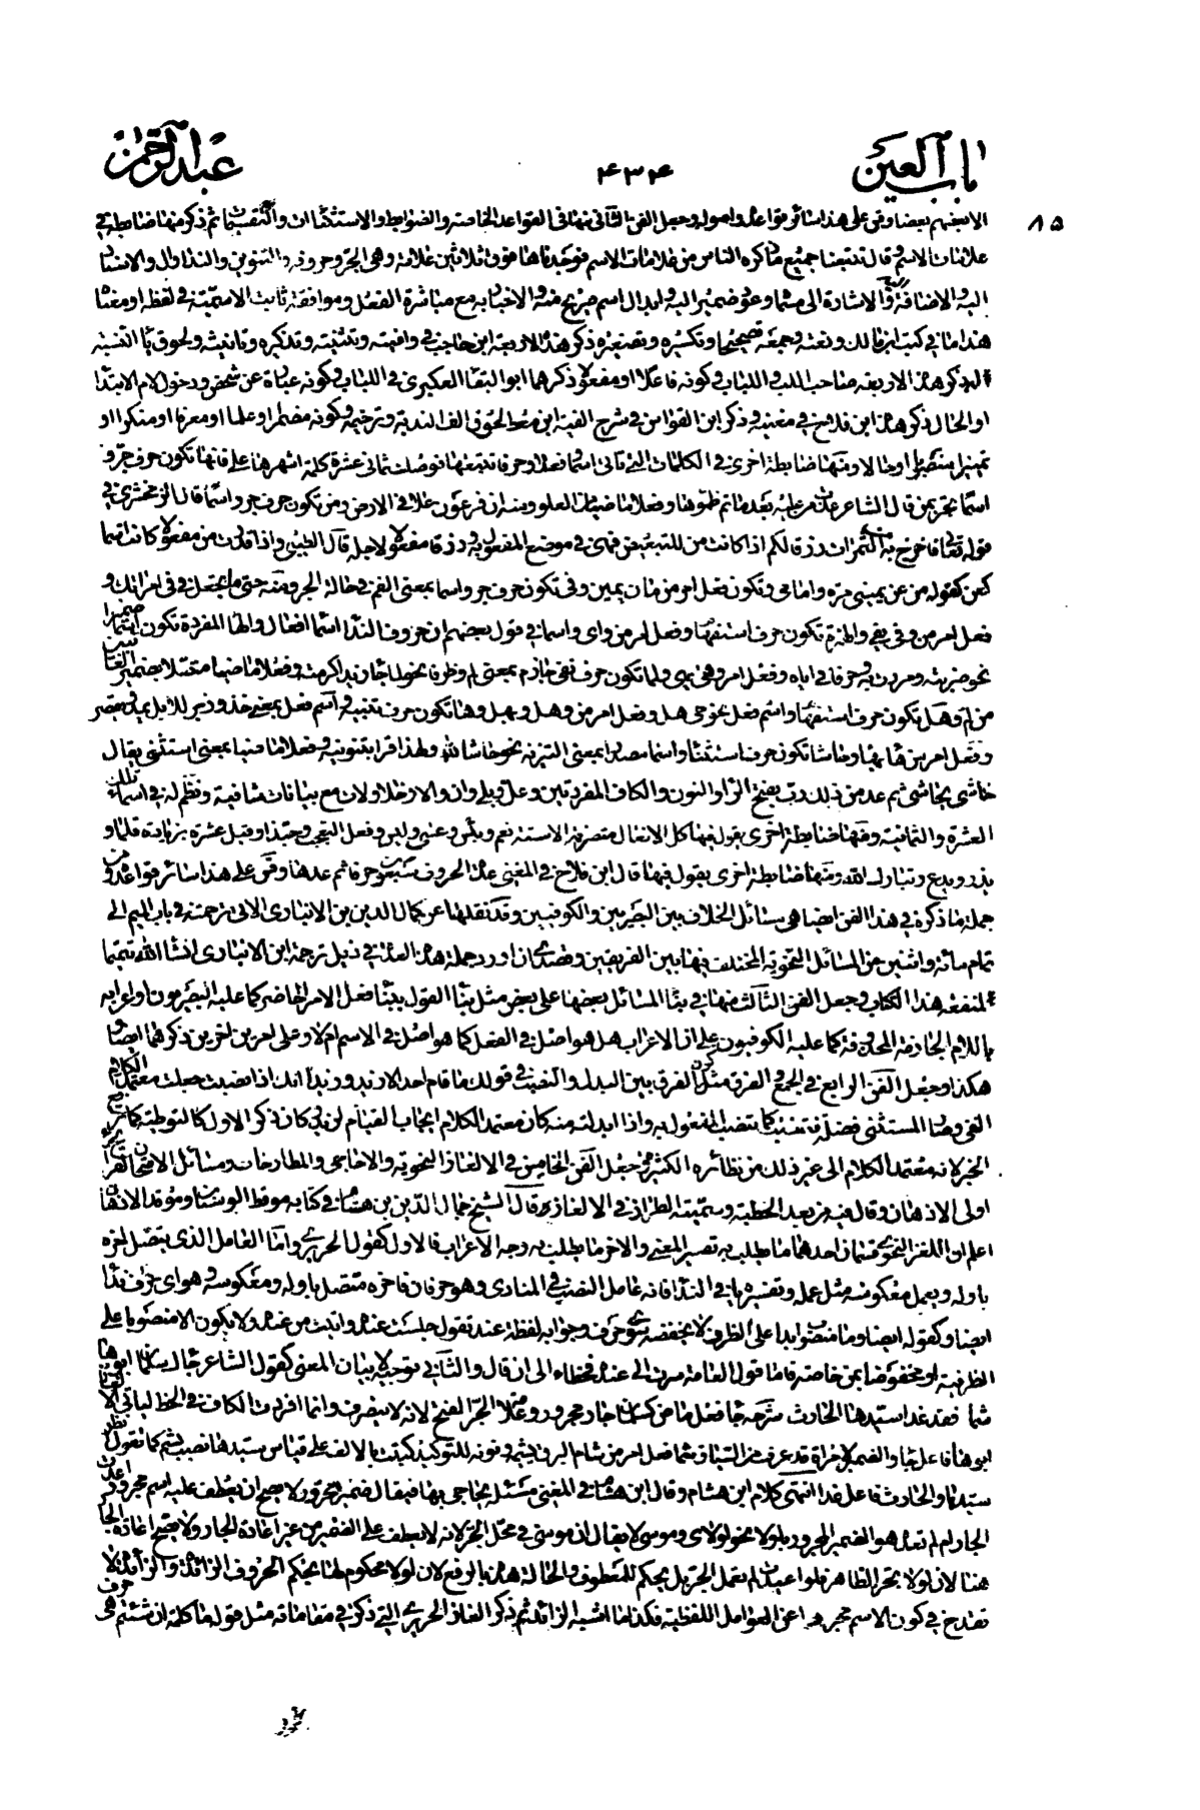 باب العين
٤٣٤
عبد الرحمن
٨٥
الا بعضهم بعضا وقس على هذا سائر قواعده واصوله وجعل الفن الثاني منها في القواعد الخاصة والضوابط والاستثناات والتقسيمات ثم ذكر منها ضابطة في
علامات الاسم وقال تتبعنا جميع ما ذكره الناس من علامات الاسم فوجدناها فوق ثلاثين علامة وهي الجر وحروفه والتنوين والنداء وال والاسناد
اليه والاضافة والاضافة اليه والاشارة الى مسماه وعود ضمير اليه وابدال اسم صريح منه والاخبار به مع مباشرة الفعل وموافقة ثابت الاسمية في لفظه او معناه
هذا ما في كتب ابن مالك ونعته وجمعه تصحيحا وتكسيره وتصغيره ذكر هذه الاربعة ابن حاجب في وافيته وتثنيته وتذكيره وتانيثه ولحوق ياء النسبة
له ذكر هذه الاربعة صاحب اللب واللباب وكونه فاعلا او مفعولا ذكرهما ابو البقاء العكبري في اللباب وكونه عبارة عن شخص ودخول لام الابتداء
او الحال ذكر هذه ابن فلاح في مغنيه وذكر ابن القواس في شرح الفية ابن معط لحوق الف الندبة وترخيمه وكونه مضمرا او علما او معرفا او منكرا او
تمييزا او منصوبا او حالا ومنها ضابطة اخرى في الكلمات التي تاتي اسما وفعلا وحرفا تتبعتها فوصلت ثماني عشرة كلمة اشهرها على فانها تكون حرف جر و
اسما بمن قال الشاعر غدت من عليه بعد ما تم ظمؤها وفعلا ماضيا من العلو ومنه ان فرعون علا في الارض ومن تكون حرف جر واسما قال الزمخشري في
قوله تعالى فاخرج به من الثمرات رزقا لكم اذا كانت من للتبعيض فهي في موضع المفعول به ورزقا مفعولا لاجله قال الطيبي واذا قدرت من مفعولا كانت اسما
كعن كقوله من عن يميني مرة وامامي وتكون فعل امر من مان يمين وفي تكون حرف جر واسما بمعنى الفم في حالة الجر ومنه حتى ما تجعل في في امراتك و
فعل امر من وفى يفي والهمزة تكون حرف استفهام وفعل امر من واى واسما في قول بعضهم ان حروف النداء اسماء افعال والهاء المفردة تكون اسما ضميرا
نحو ضربته ومررت به وحرفا في اياه وفعل امر وهى يهي ولما تكون حرف نفي جازم بمعنى لم وظرفا نحو لما جاء زيد اكرمته وفعلا ماضيا متصلا بضمير الغائبين
من لم وهل تكون حرف استفهام واسم فعل نحو حي هل وفعل امر من وهل يهل وها تكون حرف تنبيه واسم فعل بمعنى خذ وزجر للابل يمد ويقصر
وفعل امر من هاء يهاء وحاشا تكون حرف استثناء واسما مصدرا بمعنى التنزيه نحو حاشا لله ولهذا قرئ بتنوينه وفعلا ماضيا بمعنى استثنى يقال
حاشى يحاشي ثم عد من ذلك رب بفتح الراء والنون والكاف المفردتين وعل وبلى وان والا وخلا ولات مع بيانات شافية ونظم له في اسماء تلك
العشرة والثمانية ومنها ضابطة اخرى يقول فيها كل الافعال متصرفة الا ستة نعم وبئس وعسى وليس وفعل التعجب وحبذا وقيل عشرة بزيادة قلما و
يذر ويدع وتبارك الله ومنها ضابطة اخرى يقول فيها قال ابن فلاح في المغني عدة الحروف سبعون حرفا ثم عدها وقس على هذا سائر قواعده ومن
جملة ما ذكره في هذا الفن ايضا هي مسائل الخلاف بين البصريين والكوفيين وقد نقلها عن كمال الدين بن الانباري الاتي ترجمته في باب الميم الى
تمام مائة واثنين من المسائل النحوية المختلف فيها بين الفريقين وقصدي ان اورد جملة هذه العدة في ذيل ترجمة ابن الانباري انشاء الله تتميما
لمنفعة هذا الكتاب وجعل الفن الثالث منها في بناء المسائل بعضها على بعض مثل بناء القول ببناء فعل الامر للحاضر كما عليه البصريون او اعرابه
باللام الجازمة المحذوفة كما عليه الكوفيون على ان الاعراب هل هو اصل في الفعل كما هو اصل في الاسم ام لا وعلى امرين اخرين ذكرهما ايضا و
هكذا وجعل الفن الرابع في الجمع والفرق مثل ذكره الفرق بين البدل والنصب في قولك ما قام احد الا زيد وزيدا انك اذا نصبت جعلت معتمد الكلام
النفي وصار المستثنى فضلة فتنصبه كما تنصب المفعول به واذا ابدلته منه كان معتمد الكلام ايجاب القيام لزيد وكان ذكر الاول كالتوطية كما ترفع
الخبر لانه معتمد الكلام الى غير ذلك من نظائره الكثيرة وجعل الفن الخامس في الالغاز النحوية والاحاجي والمطارحات ومسائل الامتحان
اولى الاذهان وقال فيه من بعد الخطبة وسميته الطراز في الالغاز قال الشيخ جمال الدين بن هشام في كتابه موقظ الوسنان وموقد الاذهان
اعلم ان اللغز النحوي قسمان احدهما ما يطلب به تفسير المعنى والاخر ما يطلب به وجه الاعراب فالاول كقول الحريري وما العامل الذي يتصل اخره
باوله ويعمل معكوسه مثل عمله وتفسيره يا في النداء فانه عامل النصب في المنادى وهو حرفان فاخره متصل باوله ومعكوسه وهو اي حرف نداء
ايضا وكقوله ايضا وما منصوب ابدا على الظرف لا يخفضه سوى حرف وجوابه لفظة عند تقول جلست عنده واتيت من عنده ولا يكون الا منصوبا على
الظرفية او مخفوضا بمن خاصة فاما قول العامة سرت الى عنده فخطاء الى ان قال والثاني توجيه لا بيان المعنى كقول الشاعر جاءك سلمان ابو هاشما
شما فقد غدا سيدها الحارث شرحه جا فعل ماض كسلمان جار ومجرور وعلامة الجر الفتح لانه لا ينصرف وانما افردت الكاف في الخط لياتي الالغاز
ابوها فاعل جاء والضمير لامراة قد عرفت من السياق شما فعل امر من شام البرق يشيمه ونونه للتوكيد كتبت بالالف على قياس سيدها نصب بشم كما تقول انظر
سيدها والحارث فاعل غدا انتهى كلام ابن هشام وقال ابن هشام في المغني مسئلة يحاجى بها فيقال ضمير مجرور لا يصح ان يعطف عليه اسم مجرور اعدت
الجار ام لم تعده وهو الضمير المجرور بلولا نحو لولاي وموسى لا يقال ان موسى في محل الجر لانه لا يعطف على الضمير من غير اعادة الجار ولا يصح اعادة الجار
هنا لان لولا لا تجر الظاهر فلو اعيدت لم تعمل الجر بل يحكم للمعطوف والحالة هذه بالرفع لان لولا محكوم لها بحكم الحروف الزائدة والزائد لا
تقدح في كون الاسم مجردا عن العوامل اللفظية فكذا ما اشبه الزائد ثم ذكر الغاز الحريري التي ذكرها في مقاماته مثل قوله ما كلمة ان شئتم هي حرف